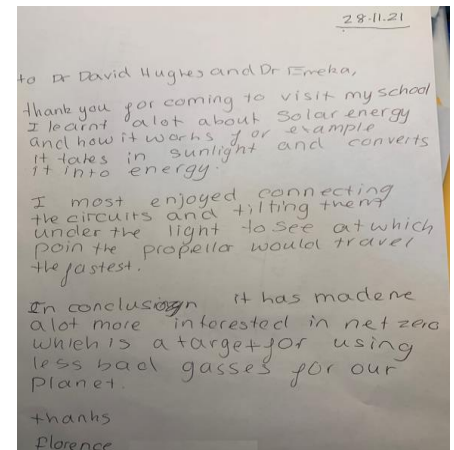 28.11.21
to Dr David Hughes and Dr Emeka,
thank you for coming to visit my school
I learnt alot about Solar energy
and how it works for example
it takes in sunlight and converts
it into energy.
I most enjoyed connecting
the circuits and tilting them
under the light to see at which
poin the propellor would travel
the fastest.
In conclusion it has made me
alot more interested in net zero
which is a target for using
less bad gasses for our
planet.
thanks
florence